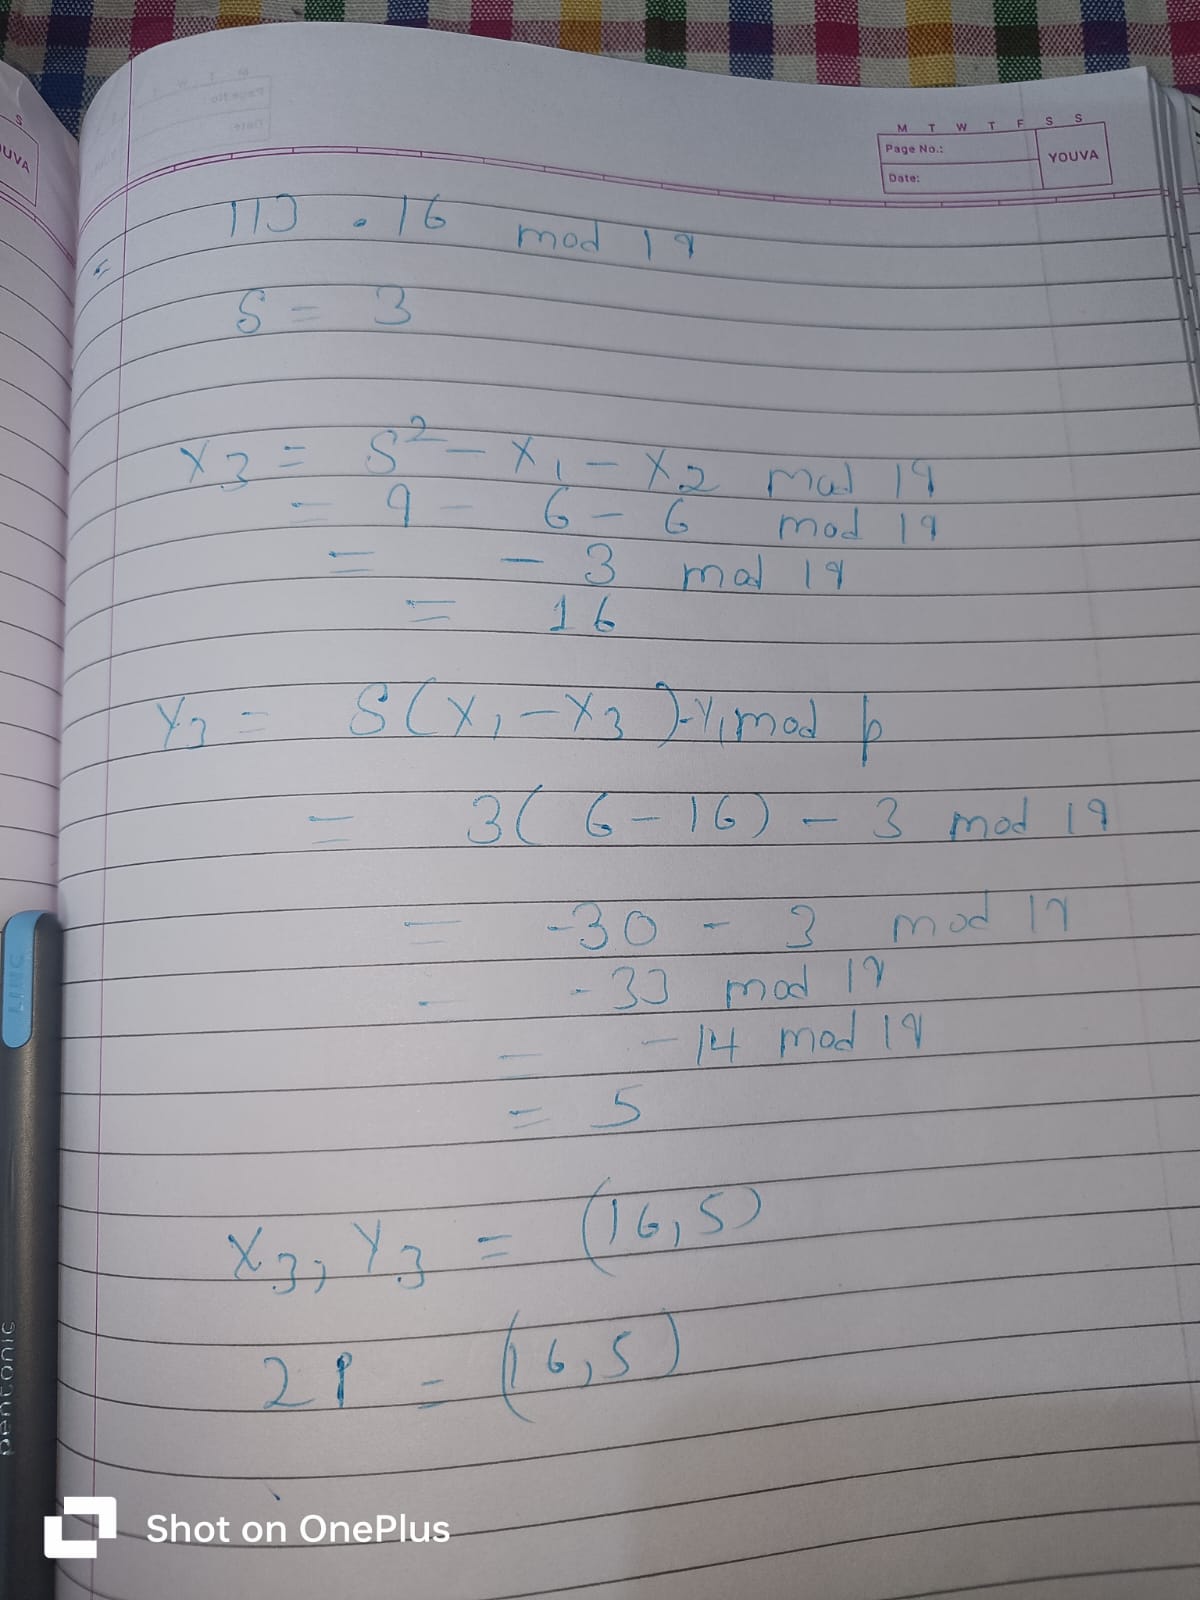 M T W T F S S
Page No.:
YOUVA
Date:
113 . 16 mod 19
S = 3
X3 = S² - X1 - X2 mod 19
= 9 - 6 - 6 mod 19
= - 3 mod 19
= 16
Y3 = S(X1 - X3) - Y1 mod p
= 3(6 - 16) - 3 mod 19
= -30 - 3 mod 19
- -33 mod 19
= -14 mod 19
= 5
X3, Y3 = (16,5)
2P = (16,5)
LINC
pentonic
Shot on OnePlus